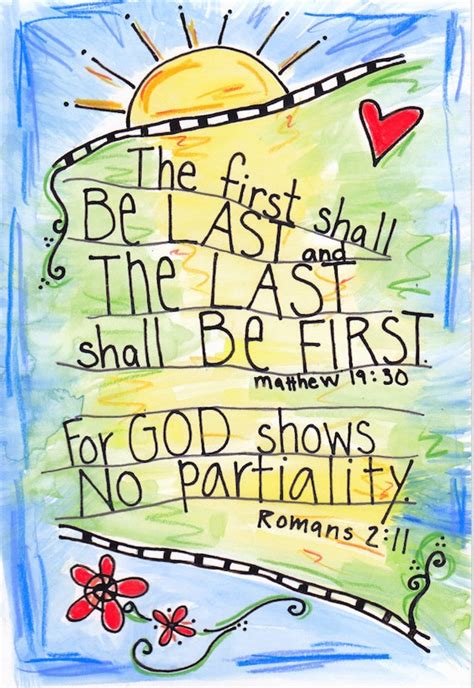 The first shall
Be LAST and
THe LAST
shall Be FIRST.
matthew 19:30
For GOD shows
No partiality.
Romans 2:11